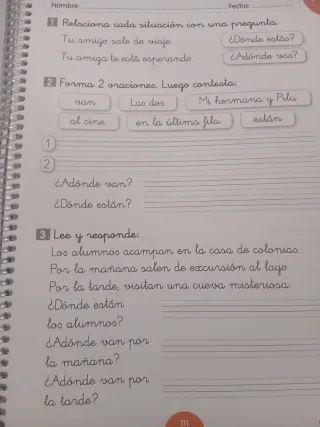 Nombre: Fecha:
1 Relaciona cada situación con una pregunta.
Tu amigo sale de viaje. ¿Dónde estás?
Tu amiga te está esperando. ¿Adónde vas?
2 Forma 2 oraciones. Luego contesta:
van Las dos Mi hermana y Pilu
al cine. en la última fila. están
1
2
¿Adónde van?
¿Dónde están?
3 Lee y responde:
Los alumnos acampan en la casa de colonias.
Por la mañana salen de excursión al lago.
Por la tarde, visitan una cueva misteriosa.
¿Dónde están
los alumnos?
¿Adónde van por
la mañana?
¿Adónde van por
la tarde?